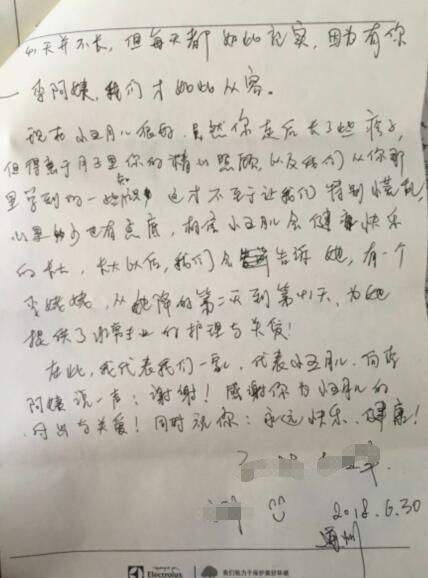 天并不长，但每天都如此充实，因为有你
一李阿姨，我们才如此从容。
现在小五月儿很好，虽然你走后长了些痱子，
但得益于月子里你的精心照顾，以及我们从你那
里学到的一些知识，这才不至于让我们特别慌乱，
心里多少也有点底，相信小五月儿会健康快乐
的长大，长大以后，我们会告诉她，有一个
李姥姥，从她降的第二天到第41天，为她
提供了非常专业的护理与关爱！
在此，我代表我们一家，代表小五月儿，向李
阿姨说一声：谢谢！感谢你为小五月儿的
付出与关爱！同时祝你：永远快乐、健康！
2018.6.30
通州
Electrolux
我们致力于保护美好环境